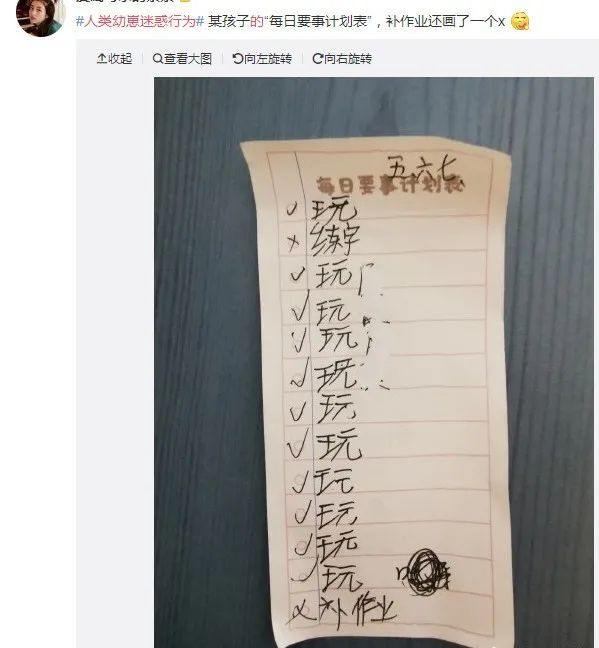 #人类幼崽迷惑行为# 某孩子的“每日要事计划表”，补作业还画了一个x
收起 查看大图 向左旋转 向右旋转
五.六七
每日要事计划表
✓ 玩
× 练字
✓ 玩
✓ 玩
✓ 玩
✓ 玩
✓ 玩
✓ 玩
✓ 玩
✓ 玩
✓ 玩
✓ 玩
× 补作业